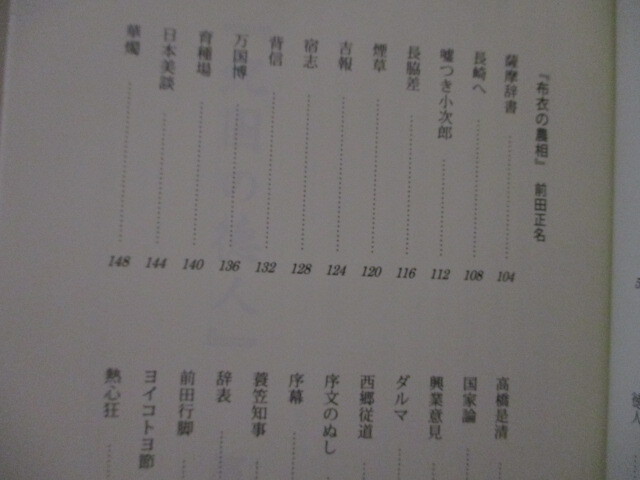 『布衣の農相』 前田正名
薩摩辞書 104
長崎へ 108
嘘つき小次郎 112
長脇差 116
煙草 120
吉報 124
宿志 128
背信 132
万国博 136
育種場 140
日本美談 144
華燭 148
高橋是清
国家論
興業意見
ダルマ
西郷従道
序文のぬし
序幕
蓑笠知事
辞表
前田行脚
ヨイコトヨ節
熱心狂